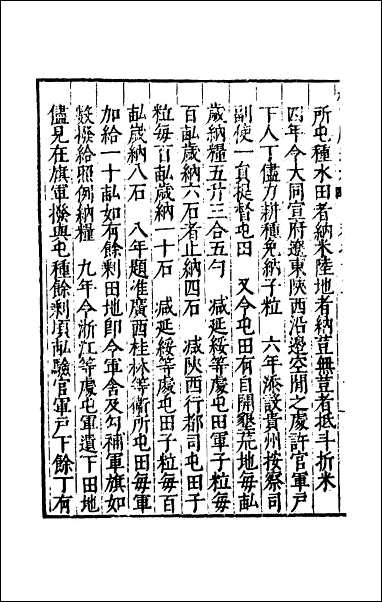 所屯種水田者納米陸地者納荳無荳者抵斗折米
四年令大同宣府遼東陜西沿邊空閒之處許官軍戸
下人丁儘力耕種免納子粒　六年添設貴州按察司
副使一員提督屯田　又令屯田有自開墾荒地每畝
歲納糧五升三合五勺　減延綏等處屯田軍子粒每
百畝歲納六石者止納四石　減陜西行都司屯田子
粒每百畝歲納一十石　減延綏等處屯田子粒每百
畝歲納八石　八年題准廣西桂林等衛所屯田每軍
加給一十畝如有餘剩田地卽令軍舍及勾補軍旗如
數撥給照例納糧　九年令浙江等處屯軍遺下田地
儘見在旗軍撥與屯種餘剩頃畝驗官軍戸下餘丁有